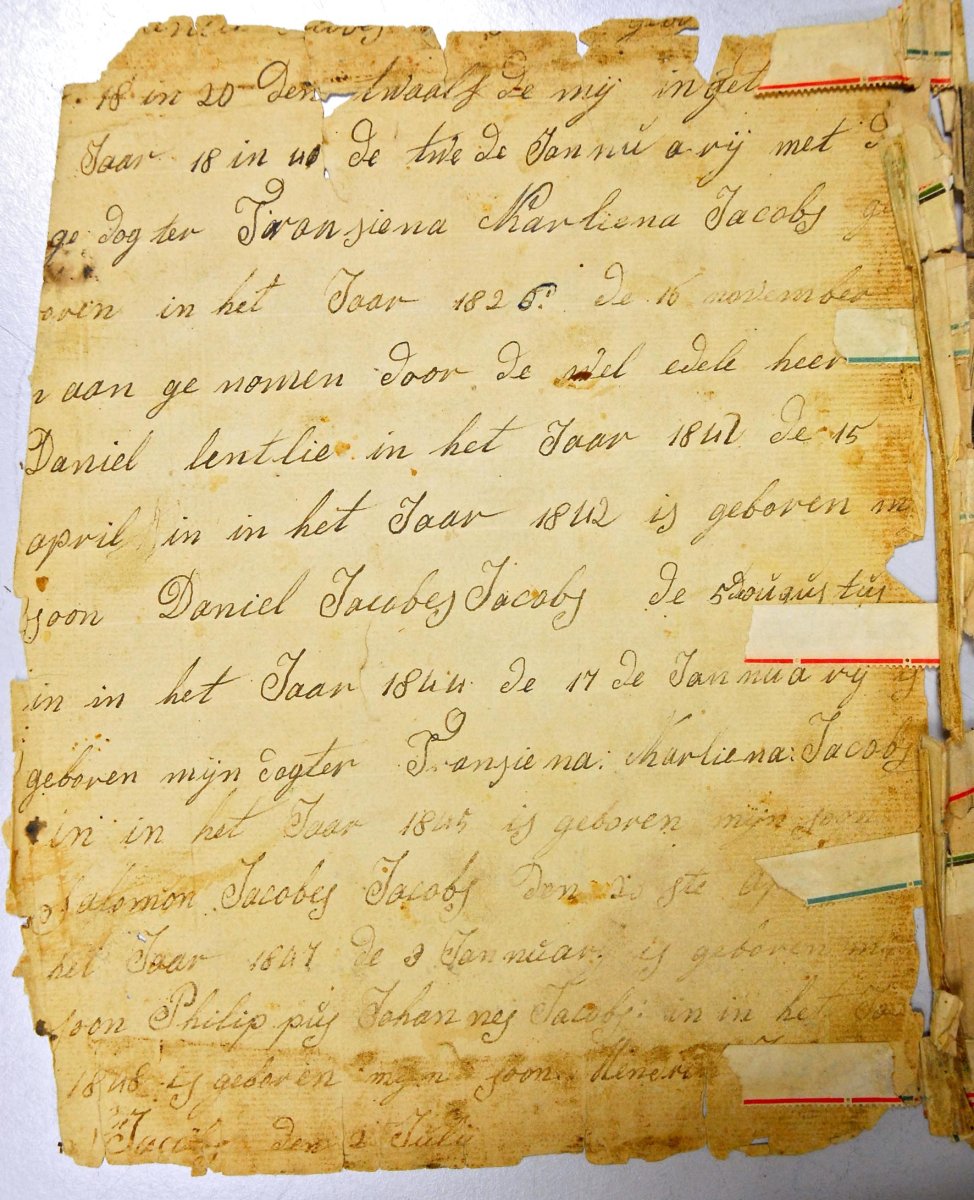 18 in 20 den twaalf de mij in get
Jaar 18 in 40 de twe de Jannuarij met
ge dogter Fransiena Marliena Jacobs ge
oren in het Jaar 1826 de 16 november
n aan ge nomen door de wel edele heer
Daniel lentlie in het Jaar 1841 de 15
april in in het Jaar 1842 is geboren m
soon Daniel Jacobes Jacobs de 5 augustus
in in het Jaar 1844 de 17 de Jannuarij is
geboren mijn dogter Fransiena: Marliena: Jacobs
in in het Jaar 1845 is geboren mijn soon
Salomon Jacobes Jacobs den 20 ste Ap
het Jaar 1847 de 3 Jannuarij is geboren m
soon Philip pus Johan nes Jacobs: in in het Jaa
1848 is geboren mijn soon Hendri
Jacobs den 2 July